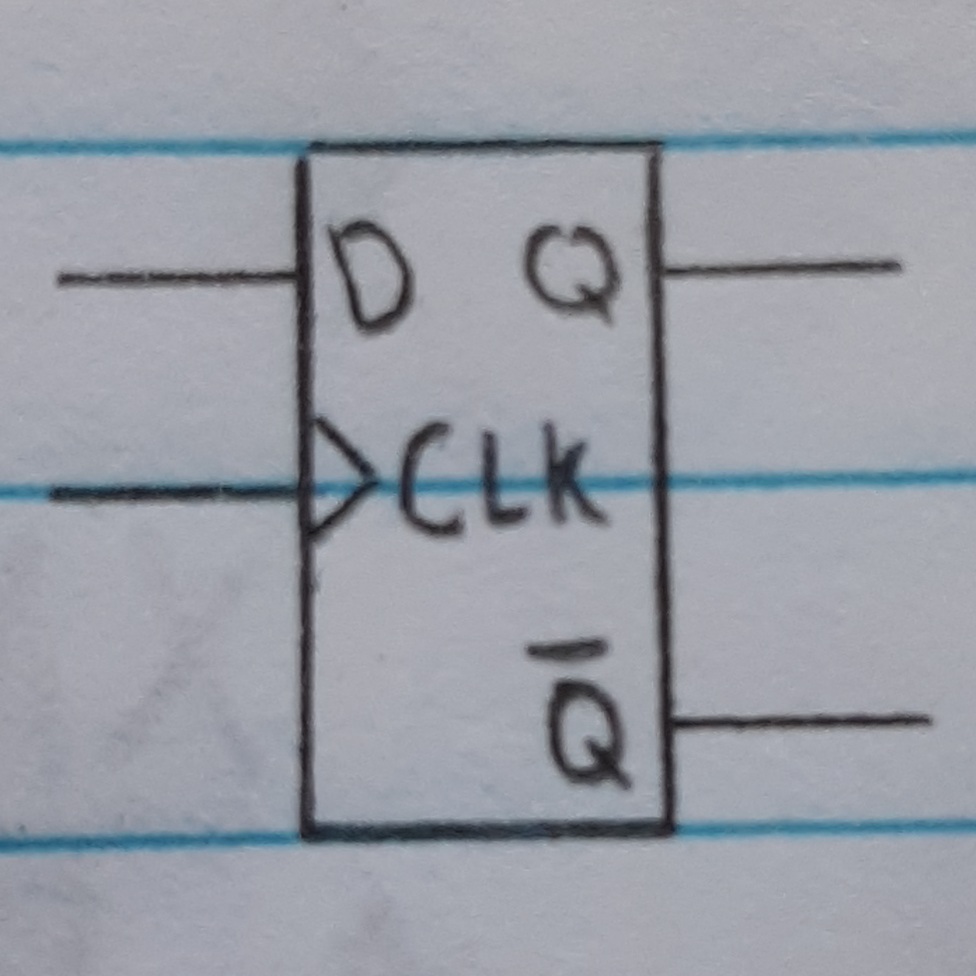 D Q
CLK
Q̅